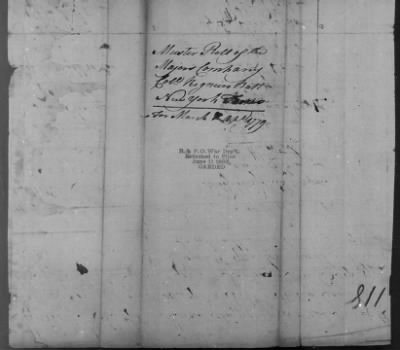 Muster Roll of the
Majors Company
Coll Regnier Batt
New York
for March & Apl 1779
R. & P. O. War Dept.
Returned to Files
June
CARDED
811